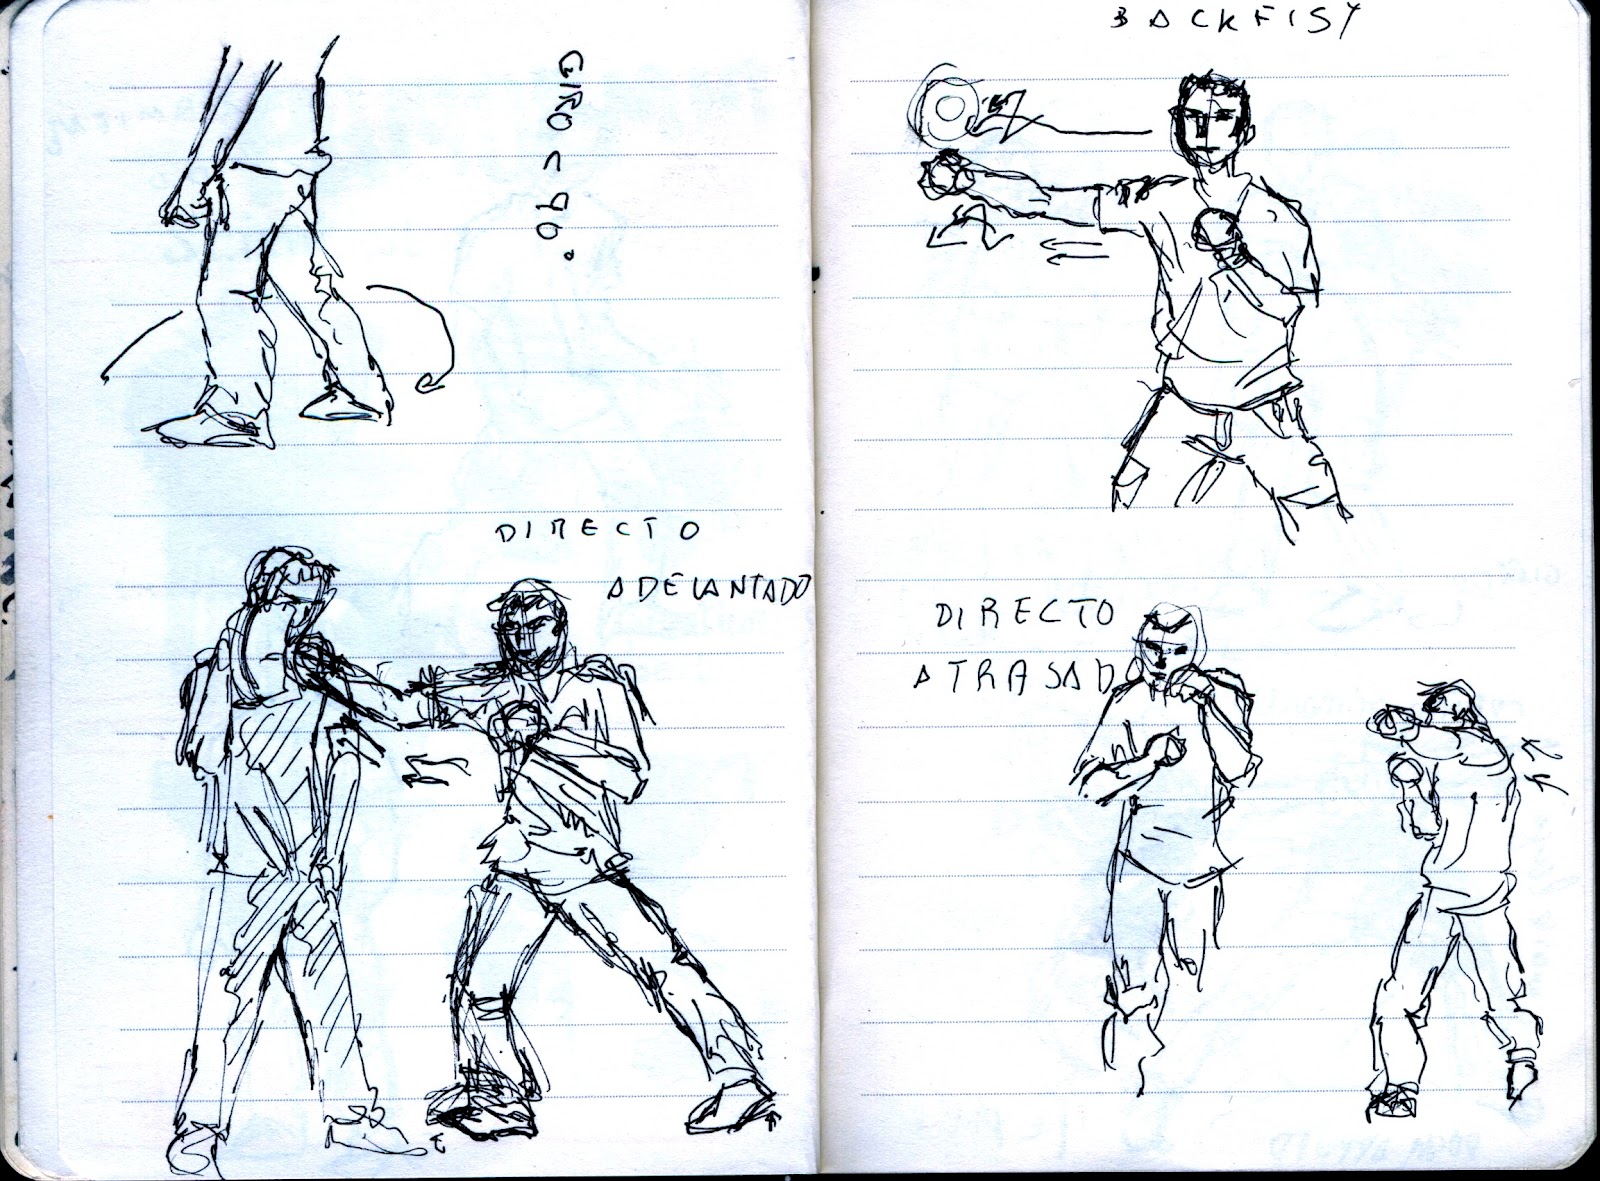 GIRO < 90°
DIRECTO
ADELANTADO
BACKFIST
DIRECTO
ATRASAD